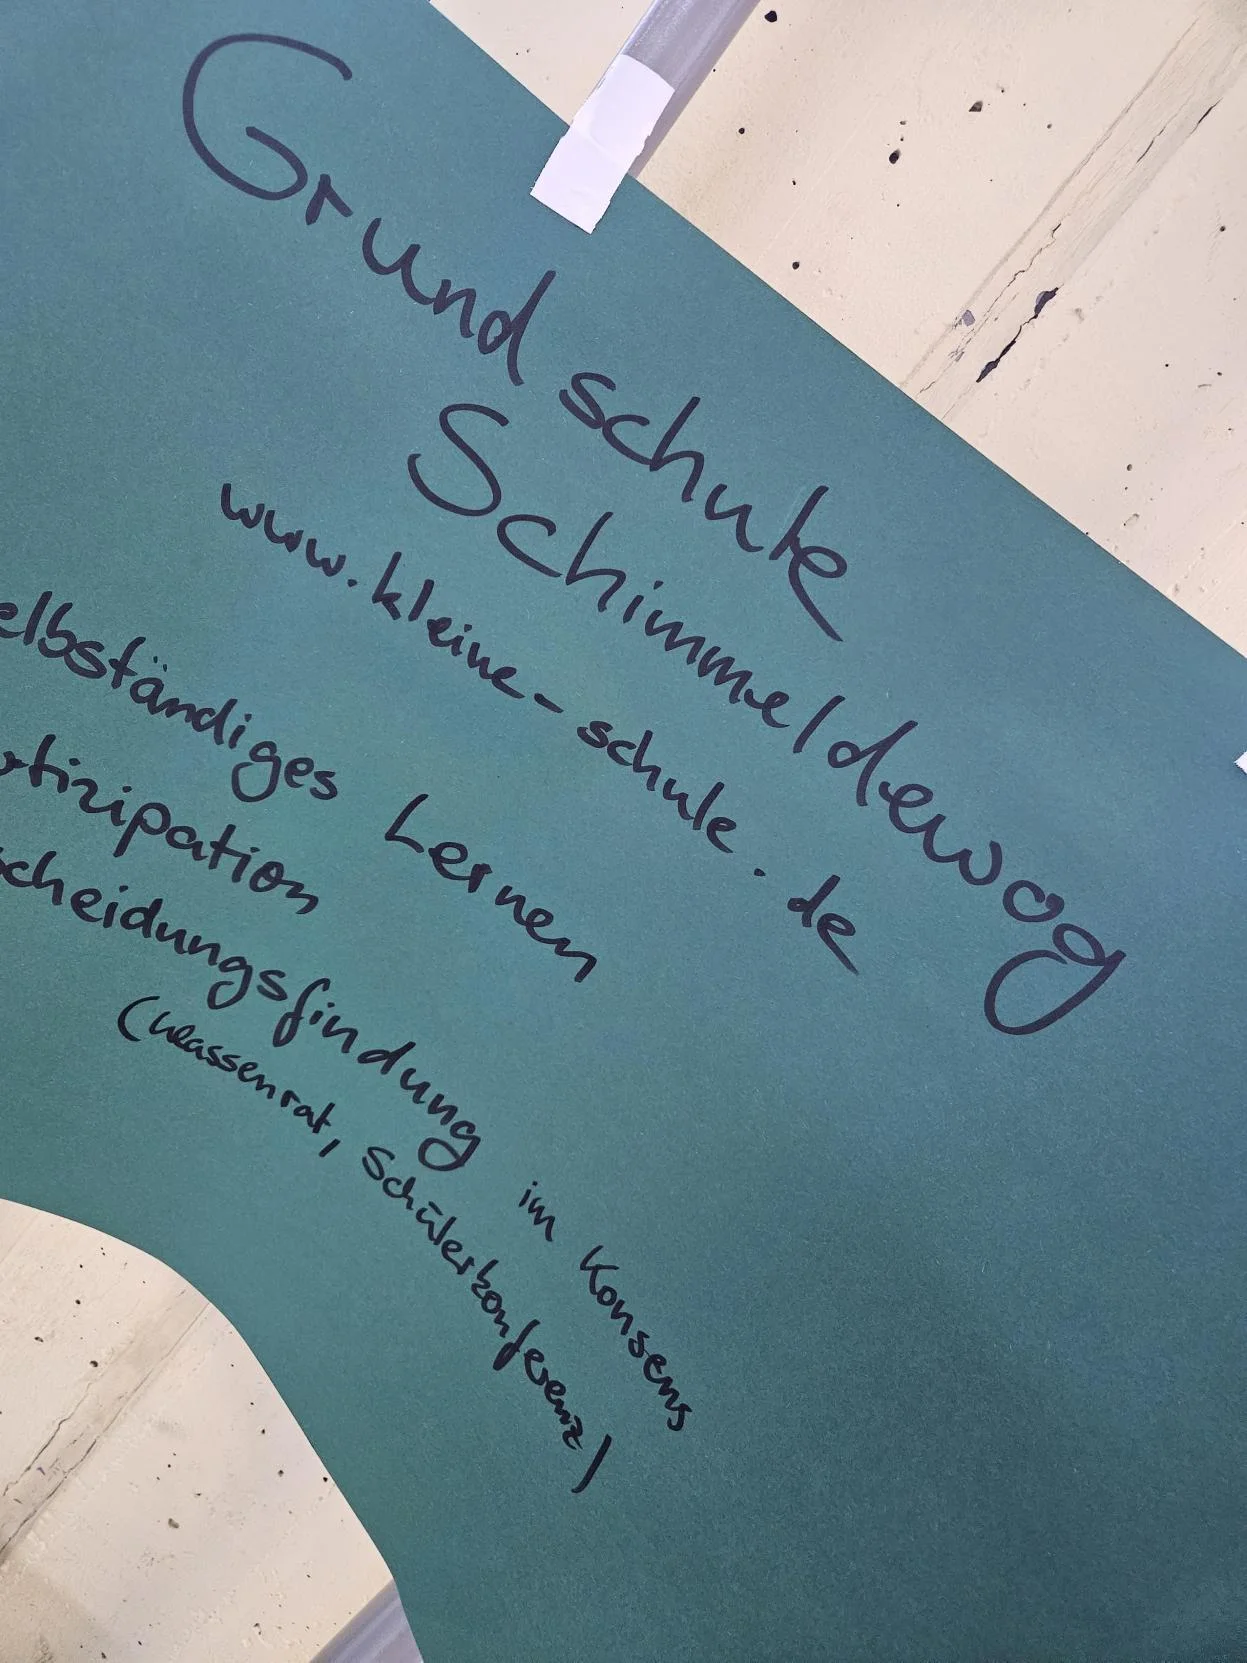 Grundschule
Schimmeldewog
www.kleine-schule.de
elbständiges Lernen
rtizipation
scheidungsfindung im Konsens
(Klassenrat, Schülerkonferenz)